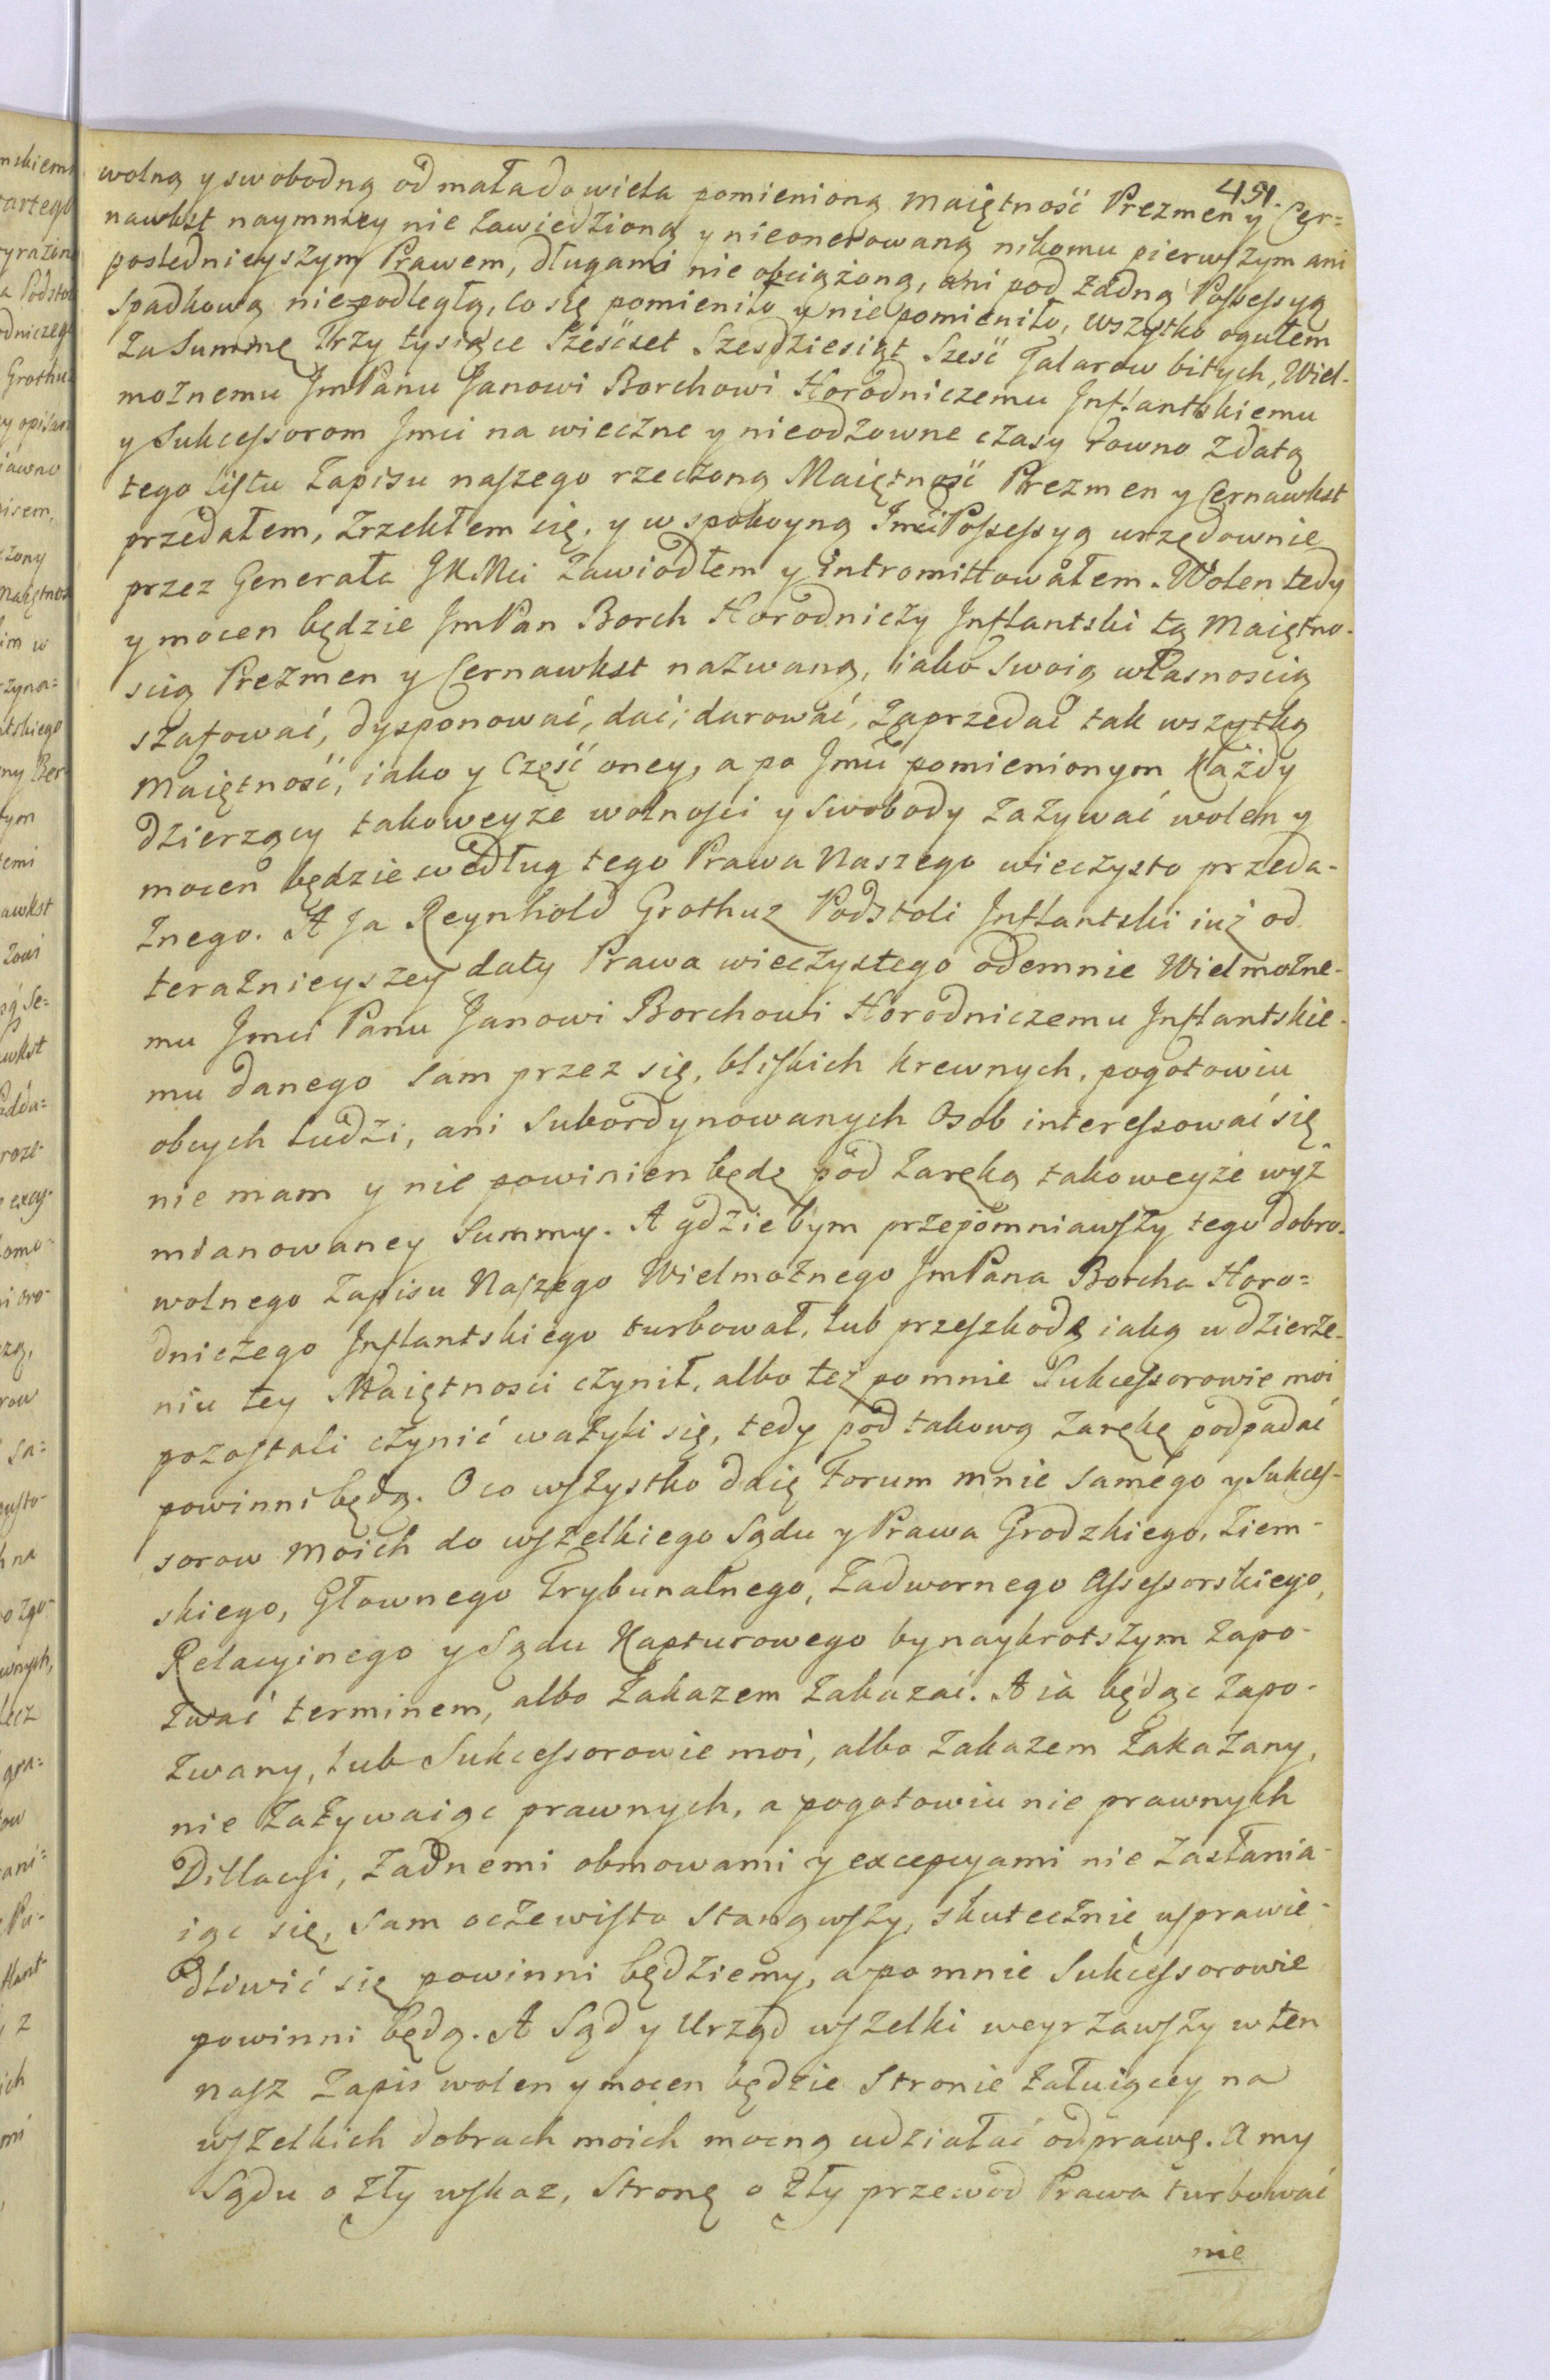 491.
wolną y swobodną od mała do wiela pomienioną Maiętność Prezmen y Cer=
nawkst naymniey nie zawiedzioną y nieonerowaną nikomu pierwszym ani
poslednieyszym Prawem, długami nie obciążoną, ani pod żadną Possessyą
Spadkową niepodległą, co się pomieniło y nie pomieniło, wszytko ogułem
za Summę Trzy tysiące Sześćset Szesdziesiąt Sześć Talarow bitych, Wiel-
możnemu JmPanu Janowi Borchowi Horodniczemu Inflantskiemu
y Sukcessorom Jmci na wieczne y nieodzowne czasy rowno z datą
tego listu Zapisu naszego rzeczoną Maiętność Prezmen y Cernawkst
przedałem, zrzekłem się, y w spokoyną Jmci Possessyą urzędownie
przez Generała JKMci zawiodłem y intromittowałem. Wolen tedy
y mocen będzie JmPan Borch Horodniczy Inflantski tą Maiętno-
scią Prezmen y Cernawkst nazwaną, iako swoią własnoscią
szafować, dysponować, dać, darować, zaprzedać tak wszytką
Maiętność, iako y Część oney, a po Jmci pomienionym Każdy
dzierzący takoweyże wolności y swobody zażywać wolen y
mocen będzie według tego Prawa Naszego wieczysto przeda-
żnego. A Ja Reynhold Grothuz Podstoli Inflantski iuż od
teraźnieyszey daty Prawa wieczystego odemnie Wielmożne-
mu Jmci Panu Janowi Borchowi Horodniczemu Inflantskie-
mu danego sam przez się, bliskich krewnych, pogotowiu
obcych ludzi, ani subordynowanych Osob interessować się
nie mam y nie powinien będę pod zaręką takoweyże wyż
mianowaney Summy. A gdzie bym przepomniawszy tego dobro-
wolnego Zapisu Naszego Wielmożnego JmPana Borcha Horo=
dniczego Inflantskiego turbował, lub przeszkodę iaką w dzierże-
niu tey Maiętnosci czynił, albo też po mnie Sukcessorowie moi
pozostali czynić ważyli się, tedy pod takową zarękę podpadać
powinni będą. O co wszystko daię Forum mnie samego y Sukces-
sorow moich do wszelkiego Sądu y Prawa Grodzkiego, Ziem-
skiego, Głownego Trybunalnego, Zadwornego Assessorskiego,
Relacyinego y Sądu Kapturowego by naykrotszym zapo-
zwać terminem, albo Zakazem zakazać. A ia będąc zapo-
zwany, lub Sukcessorowie moi, albo Zakazem zakazany,
nie zażywaiąc prawnych, a pogotowiu nie prawnych
Dillacyi, żadnemi obmowami y excepcyami nie zasłania-
iąc się, sam oczewisto stanąwszy, skutecznie usprawie-
dliwić się powinni będziemy, a po mnie Sukcessorowie
powinni będą. A Sąd y Urząd wszelki weyrzawszy w ten
nasz Zapis wolen y mocen będzie Stronie żałuiącey na
wszelkich dobrach moich mocną udziałać odprawę. A my
Sądu o zły wskaz, Stronę o zły przewod Prawa turbować
nie